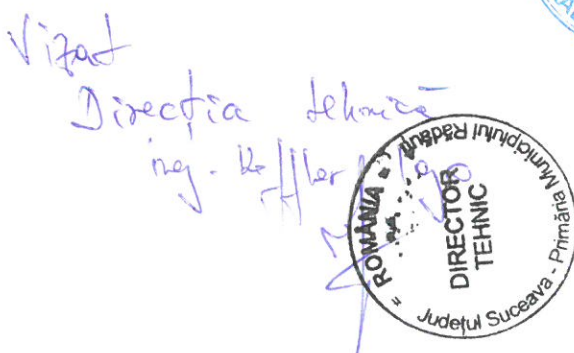 Vizat
Direcția tehnică
ing.
* ROMÂNIA *
Județul Suceava - Primăria Municipiului Rădăuți
DIRECTOR
TEHNIC